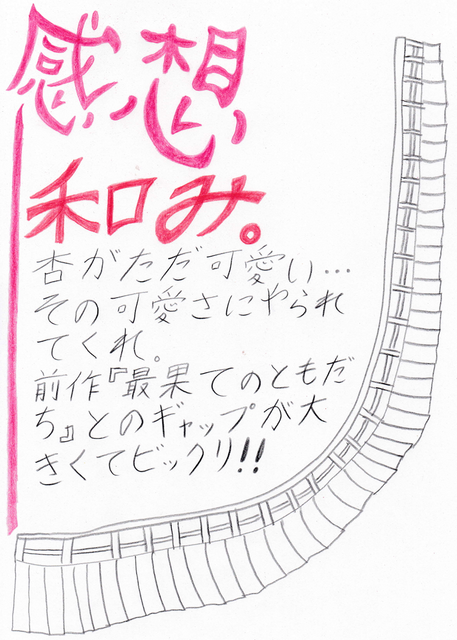 感想
和み。
杏がただ可愛い…
その可愛さにやられ
てくれ。
前作『最果てのともだ
ち』とのギャップが大
きくてビックリ!!